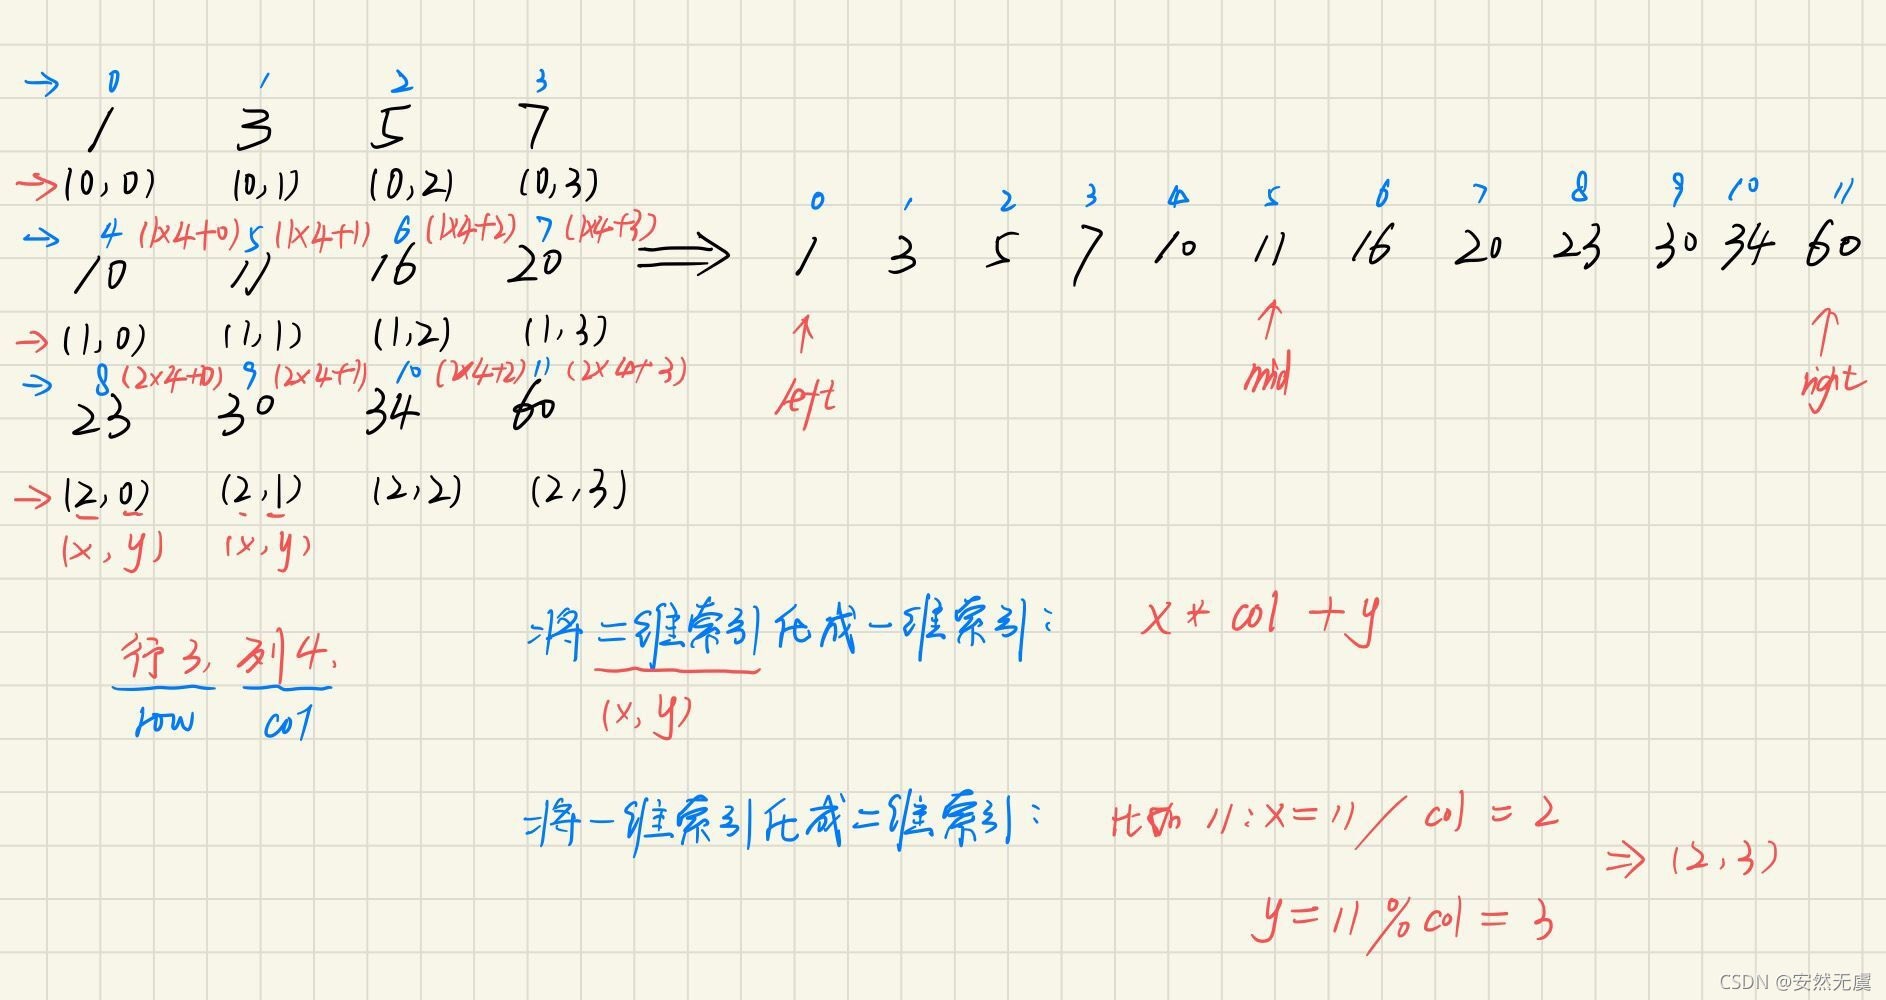 → 0 1 2 3
1 3 5 7
→ (0,0) (0,1) (0,2) (0,3)
→ 4 (1×4+0) 5 (1×4+1) 6 (1×4+2) 7 (1×4+3)
10 11 16 20
→ (1,0) (1,1) (1,2) (1,3)
→ 8 (2×4+0) 9 (2×4+1) 10 (2×4+2) 11 (2×4+3)
23 30 34 60
→ (2,0) (2,1) (2,2) (2,3)
(x,y) (x,y)
⇒
0 1 2 3 4 5 6 7 8 9 10 11
1 3 5 7 10 11 16 20 23 30 34 60
↑ ↑ ↑
left mid right
行3, 列4.
row col
将二维索引化成一维索引: x * col + y
(x,y)
将一维索引化成二维索引: 比如 11: x = 11 / col = 2
⇒ (2,3)
y = 11 % col = 3
CSDN @安然无虞